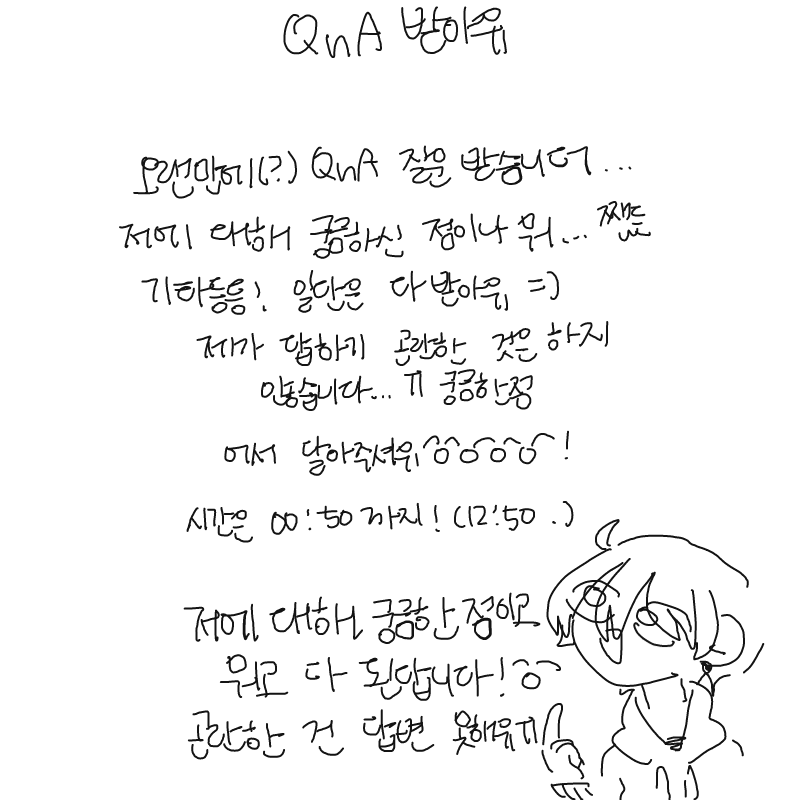 QnA 받아워
오랜만에(?) QnA 질문 받습니더...
저에 대해 궁금하신 점이나 뭐... 쨌든
기타등등! 일단은 다 받아워 =)
제가 답하기 곤란한 것은 하지
않습니다... ㅠ 궁금한점
어서 달아주셔워ㅎㅎㅎㅎ!
시간은 00:50까지! (12:50.)
저에 대해 궁금한 점이로
뭐로 다 된답니다!ㅎ
곤란한 건 답변 못해워ㅠ